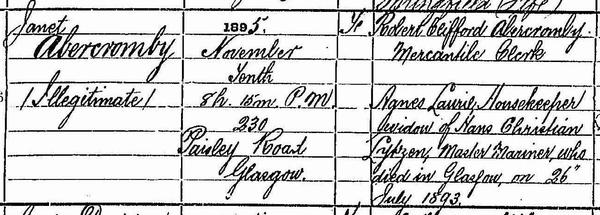 Janet
Abercromby
/Illegitimate/
1895.
November
Tenth
8h. 15m P.M.
230
Paisley Road
Glasgow.
F
Robert Clifford Abercromby
Mercantile Clerk
Agnes Laurie, Housekeeper
widow of Hans Christian
Master Mariner, who
died in Glasgow, on 26"
July 1893.